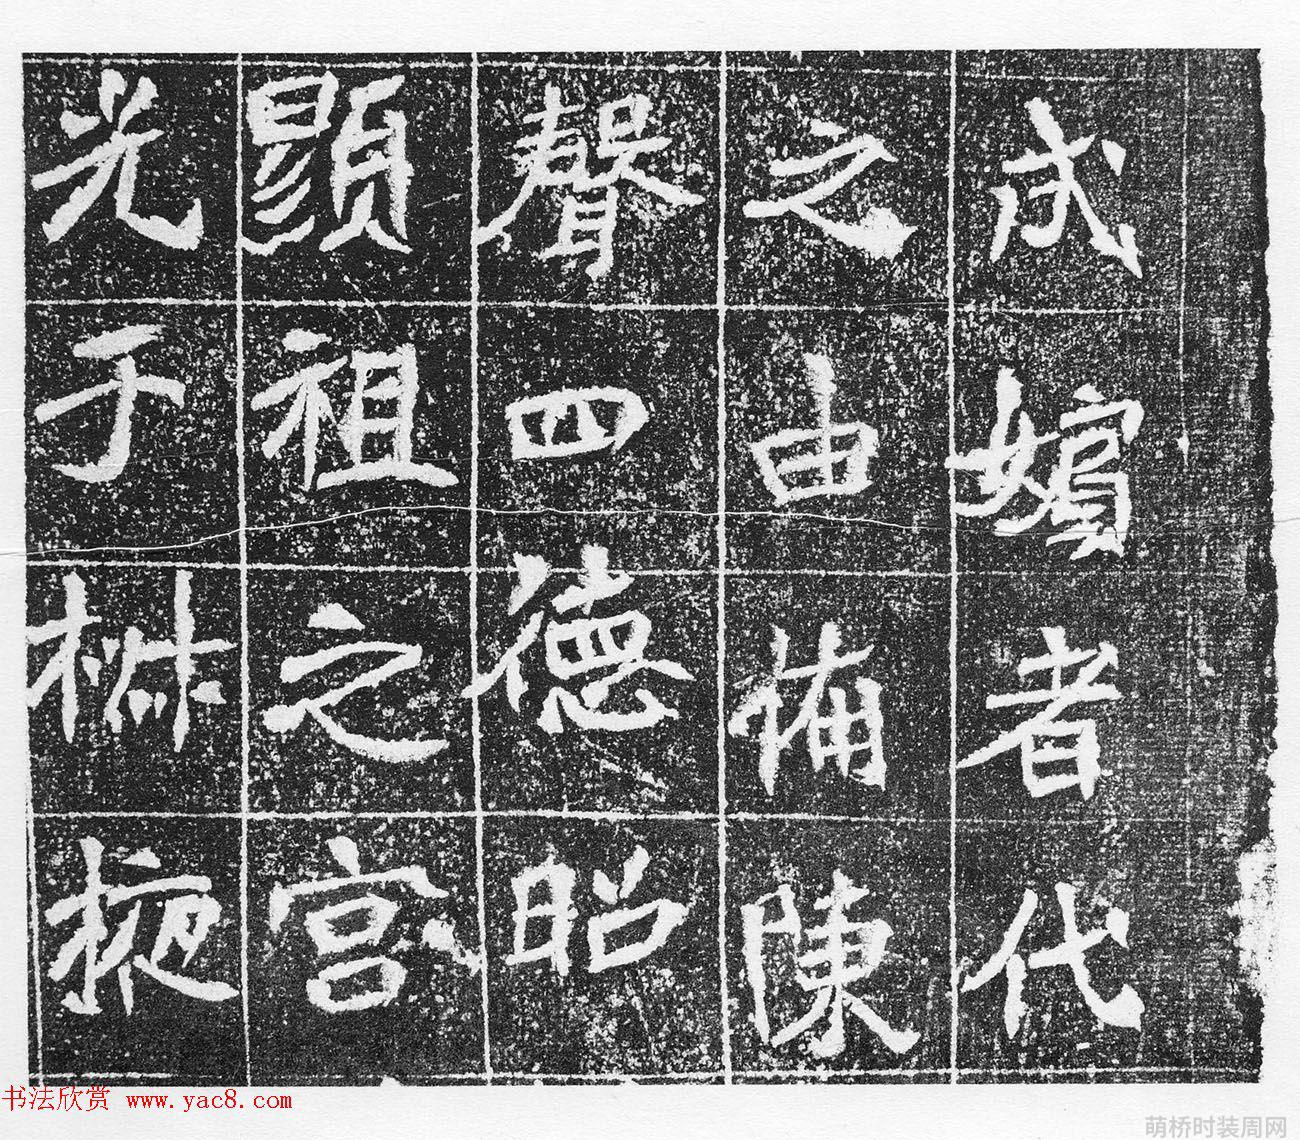 成嬪者代
之由備陳
聲四德昭
顯祖之宮
光于椒掖
书法欣赏 www.yac8.com
萌桥时装周网